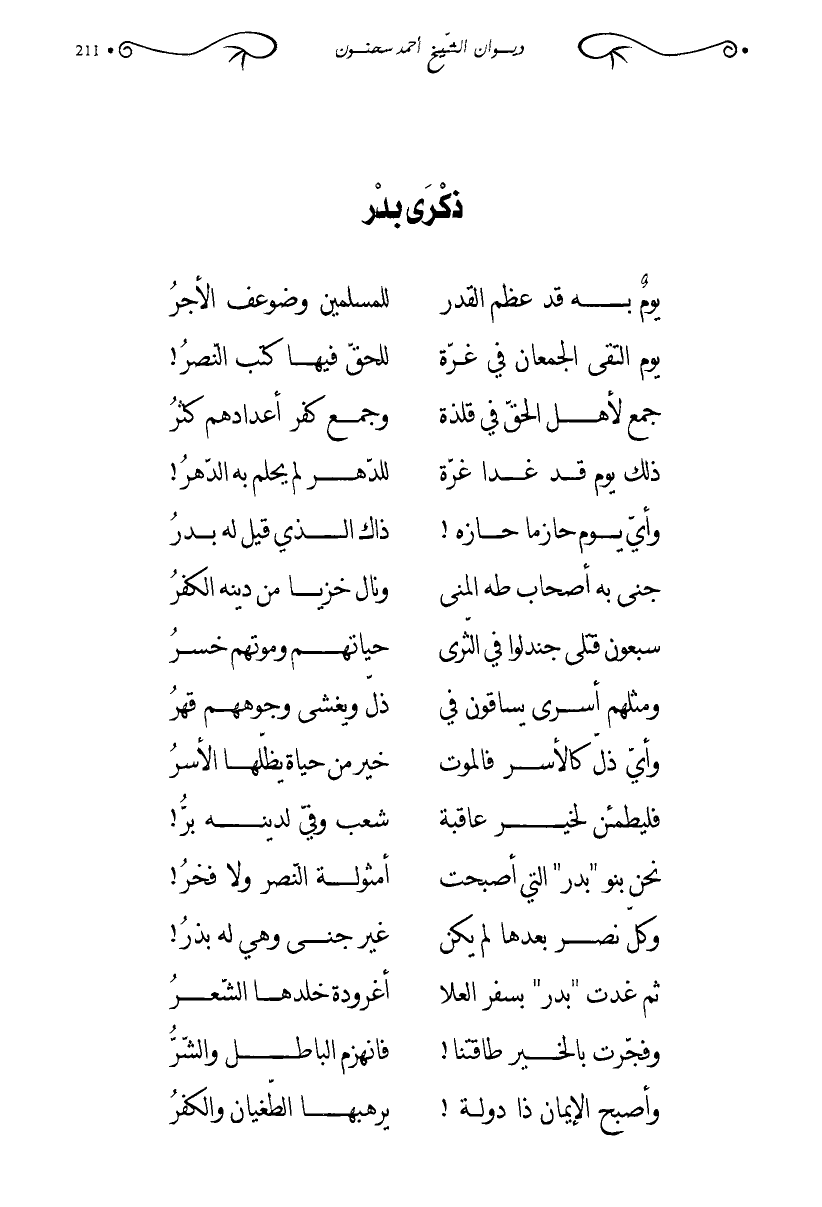 ديوان الشّيخ أحمد سحنون 211
ذكْرَى بدْر
يومٌ به قد عظم القدر للمسلمين وضوعف الأجرُ
يوم التقى الجمعان في غرّة للحقّ فيها كتب النّصرُ!
جمع لأهل الحقّ في قلذة وجمع كفر أعدادهم كثرُ
ذلك يوم قد غدا غرّة للدّهر لم يحلم به الدّهرُ!
وأيّ يوم حازما حازه ! ذاك الذي قيل له بدرُ
جنى به أصحاب طه المنى ونال خزيا من دينه الكفرُ
سبعون قتلى جندلوا في الثّرى حياتهم وموتهم خسرُ
ومثلهم أسرى يساقون في ذلّ ويغشى وجوههم قهرُ
وأيّ ذلّ كالأسر فالموت خير من حياة يظلّها الأسرُ
فليطمئن لخير عاقبة شعب وفيّ لدينه برُّ!
نحن بنو "بدر" التي أصبحت أمثولة النّصر ولا فخرُ!
وكلّ نصر بعدها لم يكن غير جنى وهي له بذرُ!
ثم غدت "بدر" بسفر العلا أغرودة خلدها الشّعرُ
وفجّرت بالخير طاقتنا ! فانهزم الباطل والشّرُّ
وأصبح الإيمان ذا دولة ! يرهبها الطّغيان والكفرُ